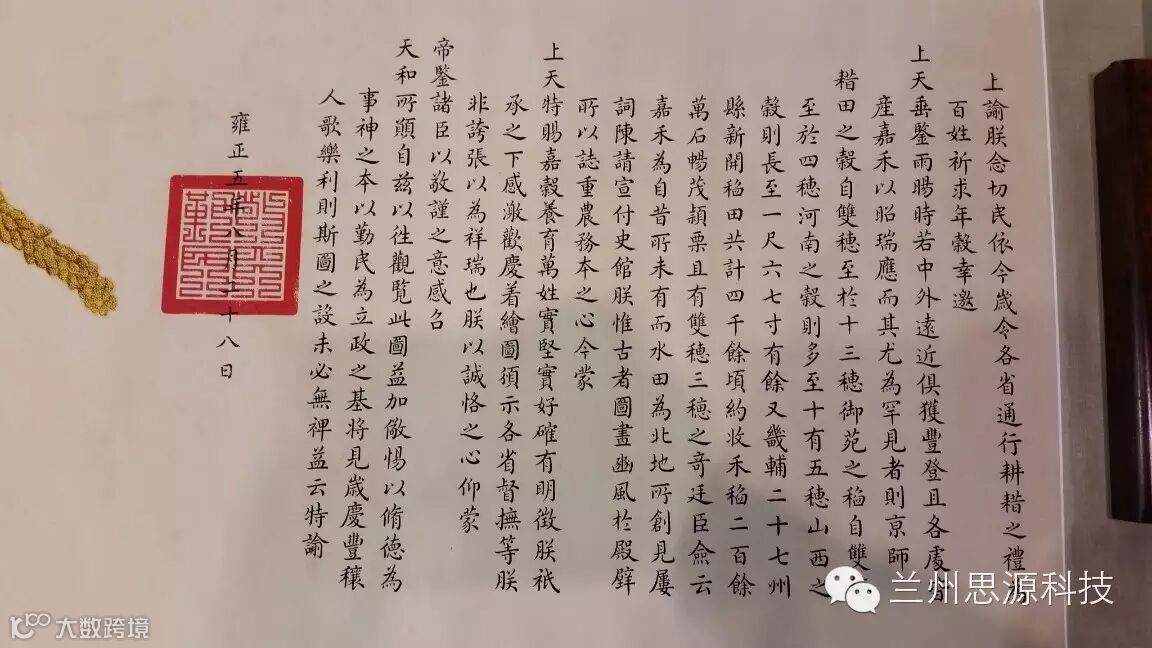 上諭朕念切民依今歳令各省通行耕耤之禮為
百姓祈求年穀幸邀
上天垂鑒雨暘時若中外遠近俱獲豐登且各處皆
産嘉禾以昭瑞應而其尤為罕見者則京師
耤田之穀自雙穗至於十三穗御苑之稻自雙
至於四穗河南之穀則多至十有五穗山西之
穀則長至一尺六七寸有餘又畿輔二十七州
縣新開稻田共計四千餘頃約收禾稻二百餘
萬石暢茂穎栗且有雙穗三穗之奇廷臣僉云
嘉禾為自昔所未有而水田為北地所創見屢
詞陳請宣付史館朕惟古者圖畫豳風於殿壁
所以誌重農務本之心今蒙
上天特賜嘉穀養育萬姓實堅實好確有明徵朕祇
承之下感激歡慶着繪圖頒示各省督撫等朕
非誇張以為祥瑞也朕以誠恪之心仰蒙
帝鑒諸臣以敬謹之意感召
天和所願自兹以徃觀覧此圖益加儆惕以脩德為
事神之本以勤民為立政之基將見歳慶豐穰
人歌樂利則斯圖之設未必無裨益云特諭
雍正五年八月二十八日
兰州思源科技
大数跨境